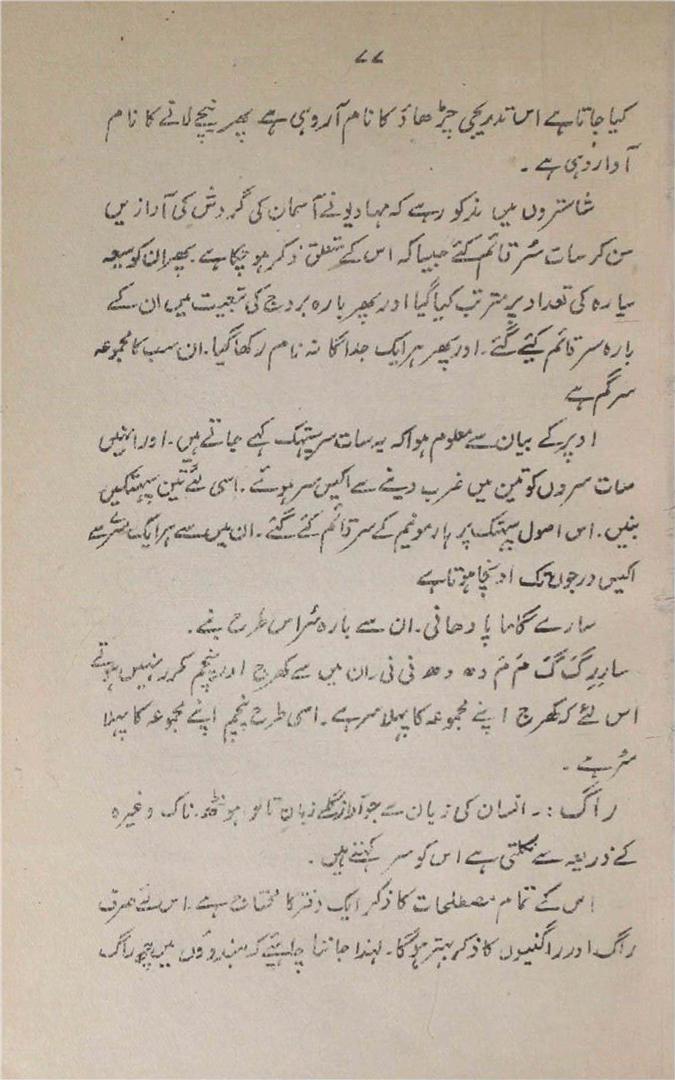 ۷۷
کیا جاتا ہے اس تدریجی چڑھاؤ کا نام آروہی ہے پھر نیچے لانے کا نام
آواروہی ہے ۔
شاستروں میں مذکور ہے کہ مہادیو نے آسمان کی گردش کی آوازیں
سن کر سات سُر قائم کئے جیسا کہ اس کے متعلق ذکر ہو چکا ہے ۔ پھر ان کو سبعہ
سیارہ کی تعداد پر مترتب کیا گیا اور پھر بارہ بروج کی تبعیت میں ان کے
بارہ سر قائم کیئے گئے ۔ اور پھر ہر ایک جداگانہ نام رکھا گیا ۔ ان سب کا مجموعہ
سرگم ہے
اوپر کے بیان سے معلوم ہوا کہ یہ سات سر سپتک کہے جاتے ہیں ۔ اور انہیں
سات سروں کو تین میں ضرب دینے سے اکیس سر ہوئے ۔ اسی لئے تین سپتکیں
بنیں ۔ اس اصول سپتک پر ہارمونیم کے سر قائم کئے گئے ۔ ان میں سے ہر ایک سُر سے
اکیس درجوں تک اونچا ہوتا ہے
سارے گاما پا دھانی ۔ ان سے بارہ سُر اس طرح بنے ۔
سا رِرِ گَ گَ مَ مَ دھ دھ نی نی ان میں سے کھرج اور پنچم مکرر نہیں ہوتے
اس لئے کہ کھرج اپنے مجموعہ کا پہلا سر ہے ۔ اسی طرح پنچم اپنے مجموعہ کا پہلا
سُر ہے ۔
راگ :۔ انسان کی زبان سے جو آواز گلے زبان تالو ہونٹھ ۔ ناک وغیرہ
کے ذریعہ سے نکلتی ہے اس کو سر کہتے ہیں ۔
اس کے تمام مصطلحات کا ذکر ایک دفتر کا محتاج ہے ۔ اس لئے صرف
راگ اور راگنیوں کا ذکر بہتر ہوگا ۔ لہٰذا جاننا چاہیئے کہ ہندوؤں میں چھ راگ